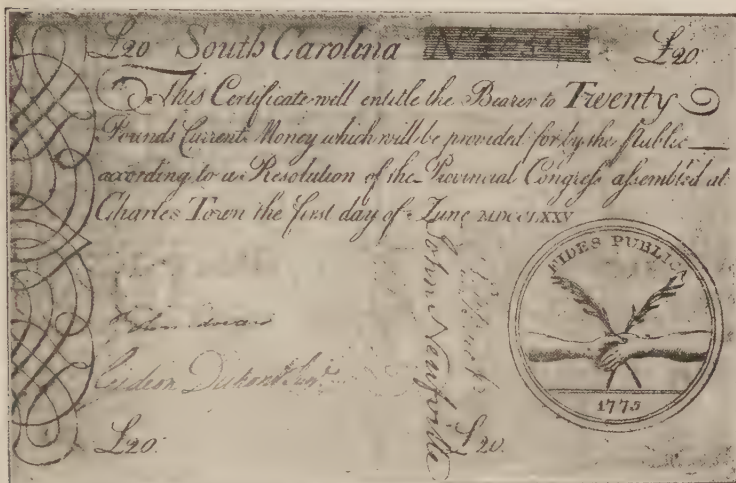 £20 South Carolina № £20.
This Certificate will entitle the Bearer to Twenty
Pounds Current Money which will be provided for by the Public
according to a Resolution of the Provincial Congress assembled at
Charles Town the first day of June MDCCLXXV
FIDES PUBLICA
1775
Gideon Dupont Junr.
John Neufville
£20.
£20.